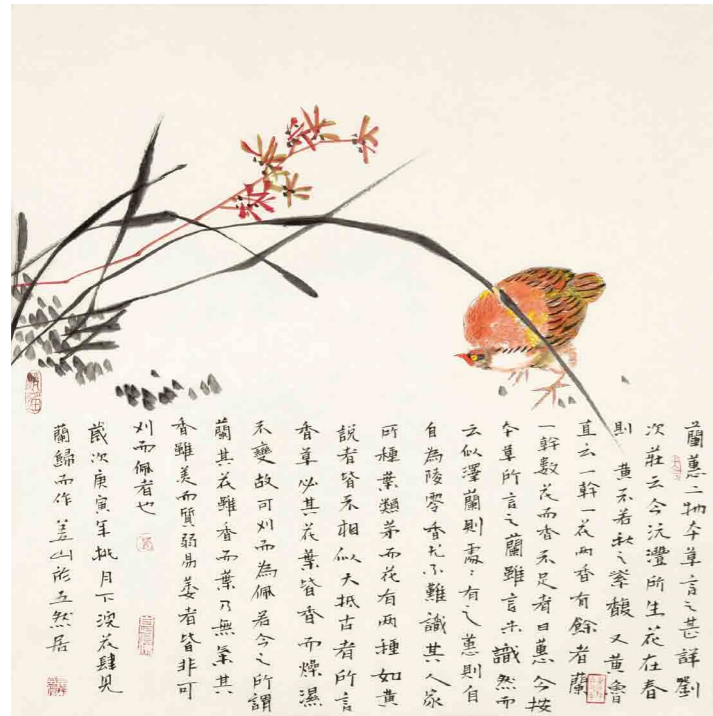 蘭蕙二物本草言之甚詳劉
次莊云今沅灃所生花在春
則黄不若秋之紫馥又黄魯
直云一幹一花而香有餘者蘭
一幹數花而香不足者曰蕙今按
本草所言之蘭雖言未識然而
云似澤蘭則處〻有之蕙則自
自為陵零香尤不難識其人家
所種葉類茅而花有兩種如黄
說者皆不相似大抵古者所言
香草必其花葉皆香而燥濕
不變故可刈而為佩若今之所謂
蘭其花雖香而葉乃無氣其
香雖美而質弱易萎者皆非可
刈而佩者也
歲次庚寅年桃月下浣花肆見
蘭歸而作 於五然居